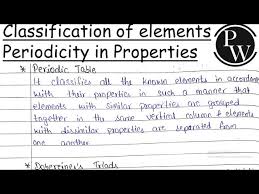 Classification of elements
Periodicity in Properties
P
W
* Periodic Table
It classifies all the known elements in accordance
with their properties in such a manner that
elements with similar properties are grouped
together in the same vertical column & elements
with dissimilar properties are separated from
one another.
* Dobereiner's Triads